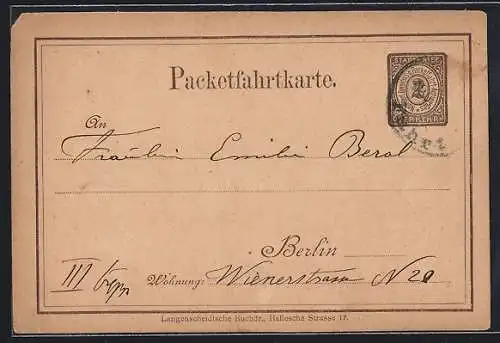 Packetfahrtkarte.
STADT-
2
VERKEHR
An
Fräulein Emilie Berol
Berlin
III
Wohnung: Wienerstrasse N 20
Langenscheidtsche Buchdr., Hallesche Strasse 17.